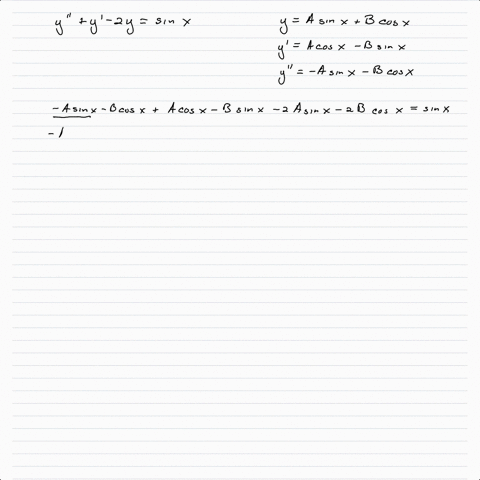 y'' + y' - 2y = sin x
y = A sin x + B cos x
y' = A cos x - B sin x
y'' = -A sin x - B cos x
-A sin x - B cos x + A cos x - B sin x - 2A sin x - 2B cos x = sin x
-A